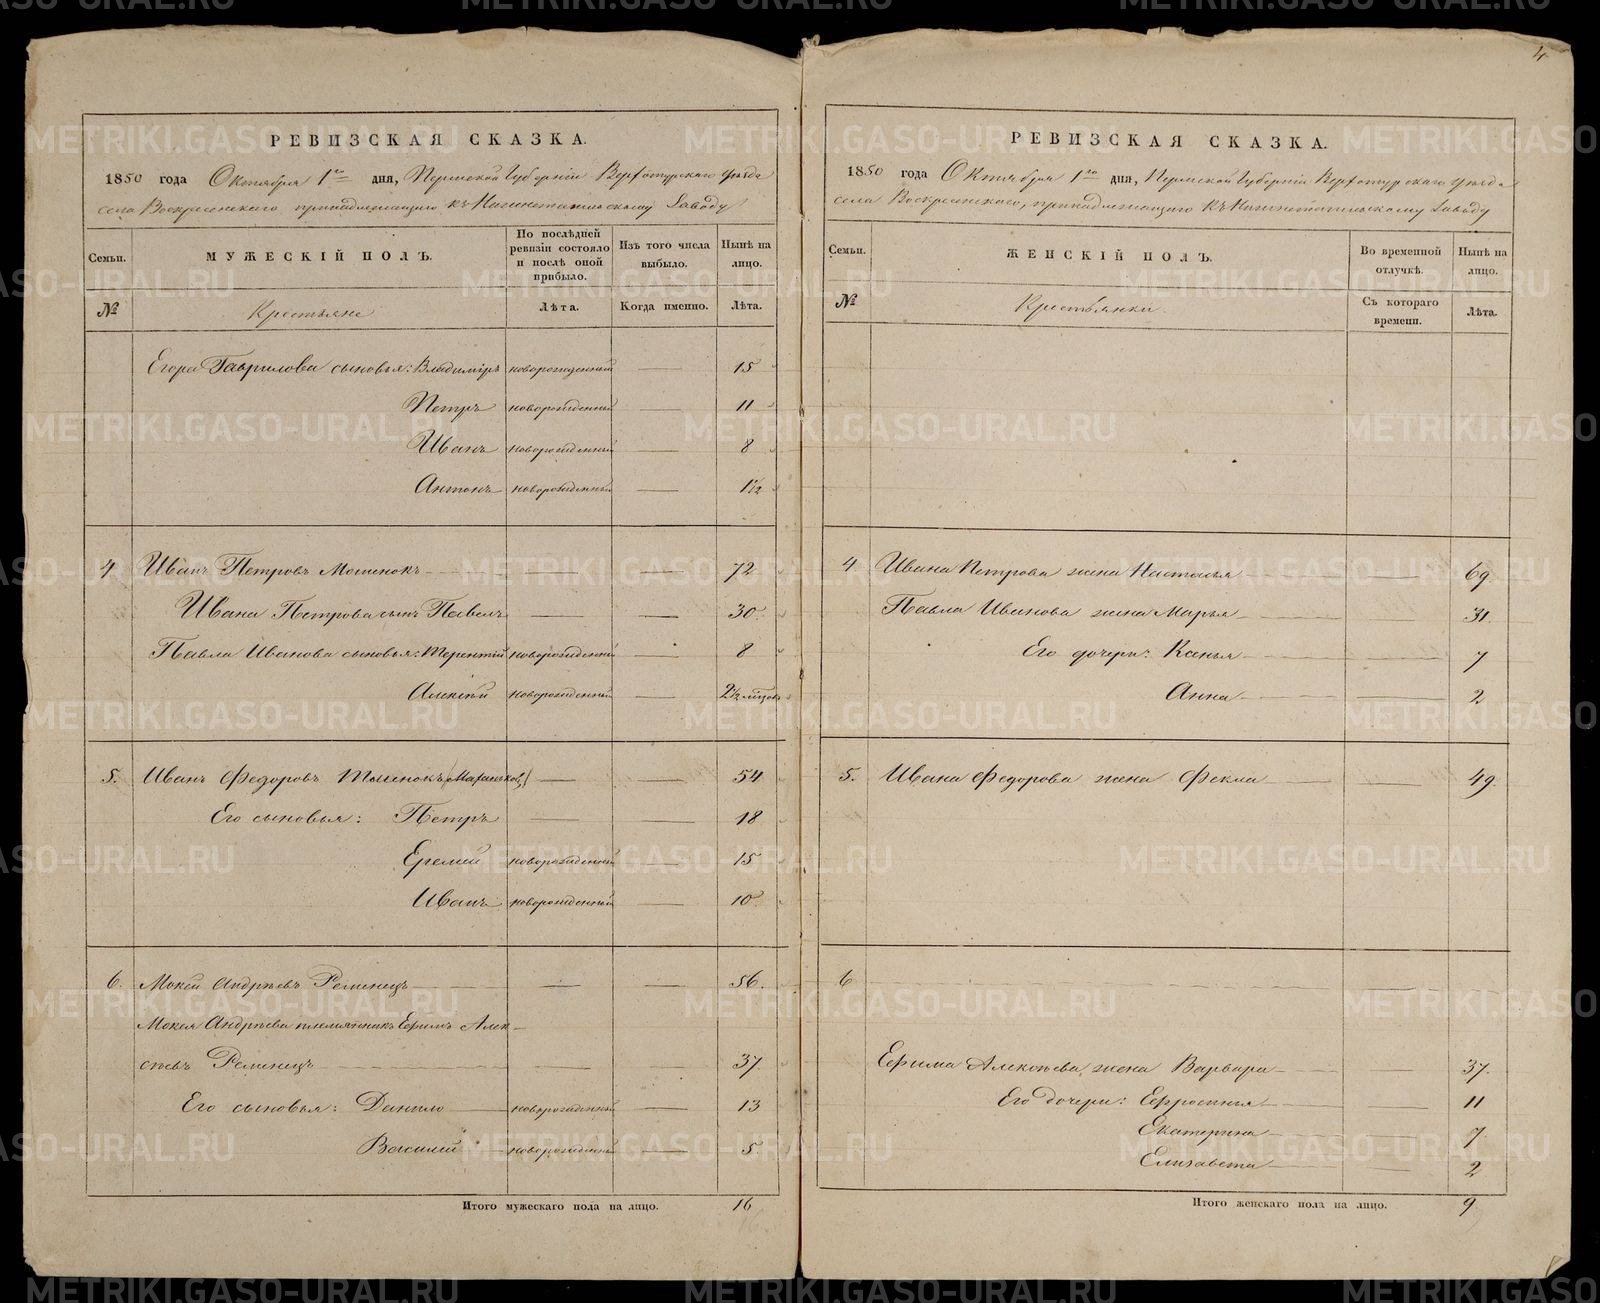 4
РЕВИЗСКАЯ СКАЗКА.
1850 года Октября 1го дня, Пермской Губерніи Верхотурскаго уѣзда
села Воскресенскаго принадлежащаго къ Нижнетагильскому Заводу
Семьи.
МУЖЕСКІЙ ПОЛЪ.
По послѣдней
ревизіи состояло
и послѣ оной
прибыло.
Изъ того числа
выбыло.
Нынѣ на
лицо.
№
Крестьяне
Лѣта.
Когда именно.
Лѣта.
Егора Гаврилова сыновья: Владиміръ новорожденный — 15
Петръ новорожденный — 11
Иванъ новорожденный — 8
Антонъ новорожденный — 1½
4 Иванъ Петровъ — — 72
Ивана Петрова сынъ Павелъ — — 30
Павла Иванова сыновья: Терентій новорожденный — 8
Алексѣй новорожденный — 2½
5. Иванъ Федоровъ — — 54
Его сыновья: Петръ — — 18
Еремей новорожденный — 15
Иванъ новорожденный — 10
6. Мокей Андрѣевъ Ременецъ — — 56.
Мокея Андрѣева племянникъ Ефимъ Алек-
сѣевъ Ременецъ — — 37.
Его сыновья: Данило новорожденный — 13
Василий новорожденный — 5
Итого мужескаго пола на лицо. 16
РЕВИЗСКАЯ СКАЗКА.
1850 года Октября 1го дня, Пермской Губерніи Верхотурскаго уѣзда
села Воскресенскаго, принадлежащаго къ Нижнетагильскому Заводу
Семьи.
ЖЕНСКІЙ ПОЛЪ.
Во временной
отлучкѣ.
Нынѣ на
лицо.
№
Крестьянки.
Съ котораго
времени.
Лѣта.
4. Ивана Петрова жена Настасья — 69
Павла Иванова жена Марья — 31
Его дочери: Ксенья — 7
Анна — 2
5. Ивана Федорова жена Фекла — 49
6
Ефима Алексѣева жена Варвара — 37.
Его дочери: Ефросинья — 11
Екатерина — 7
Елизавета — 2
Итого женскаго пола на лицо. 9
METRIKI.GASO-URAL.RU